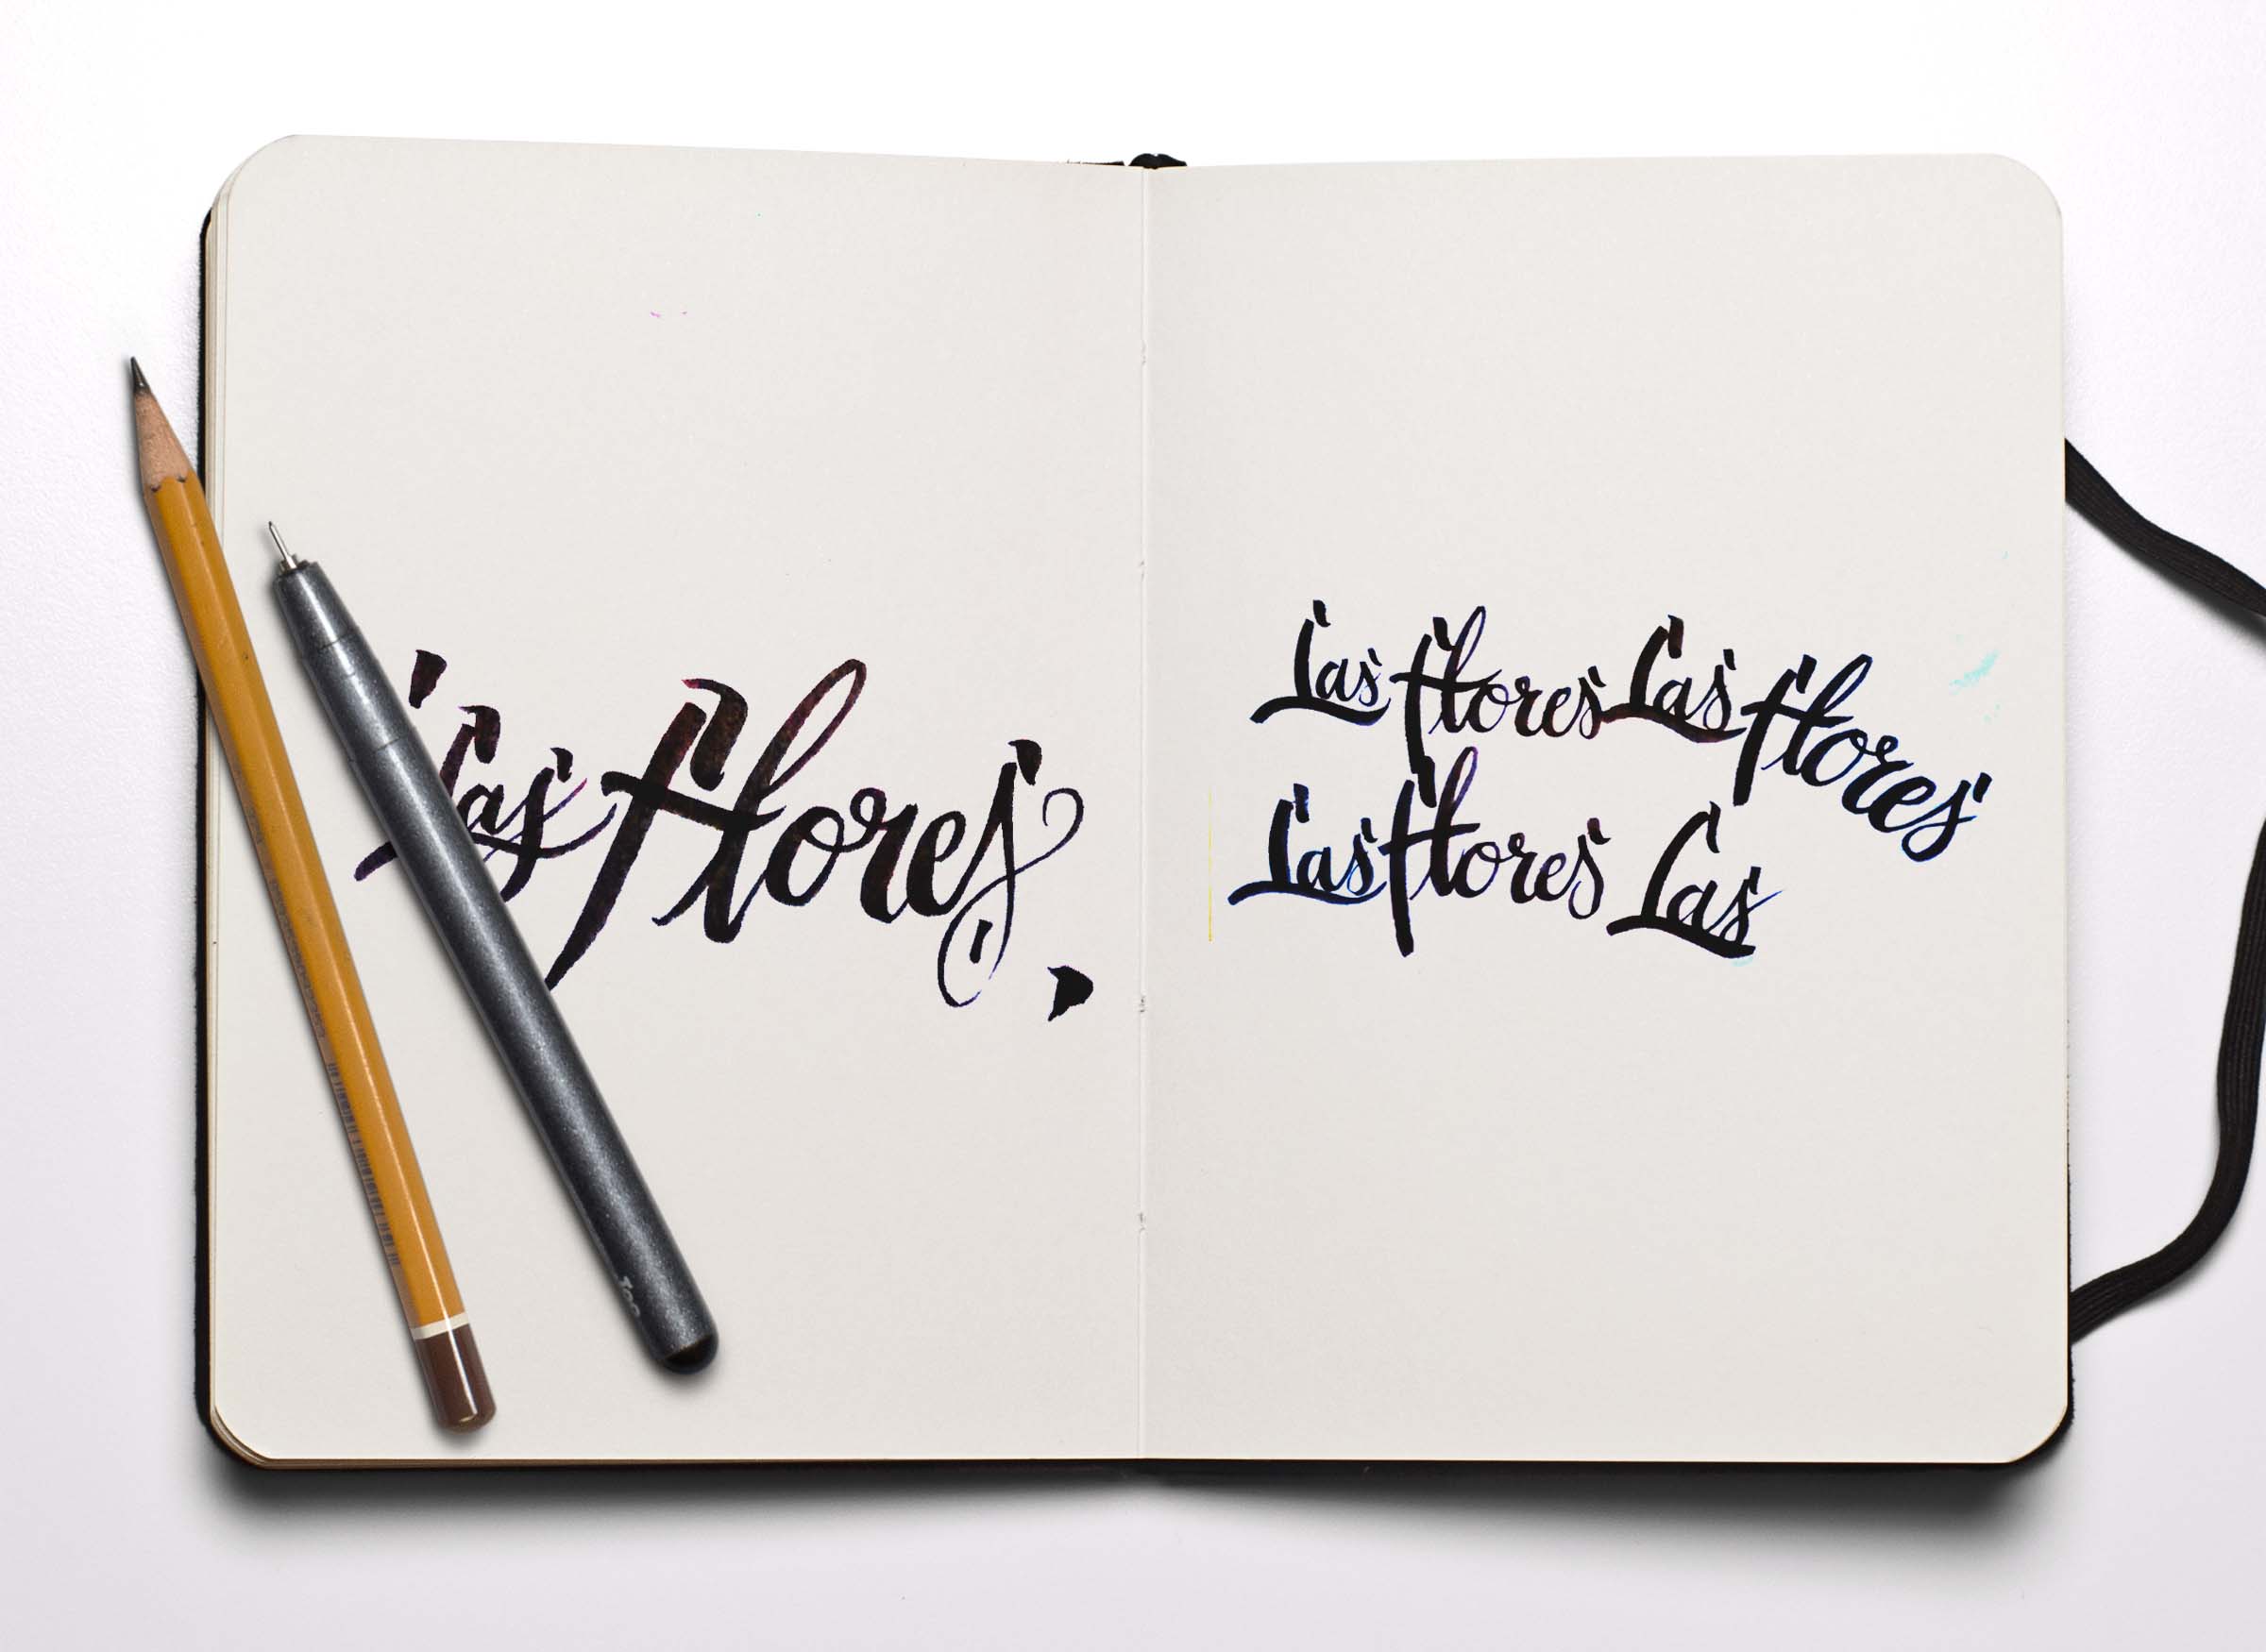 Las Flores
Las Flores Las Flores
Las Flores Las
Too